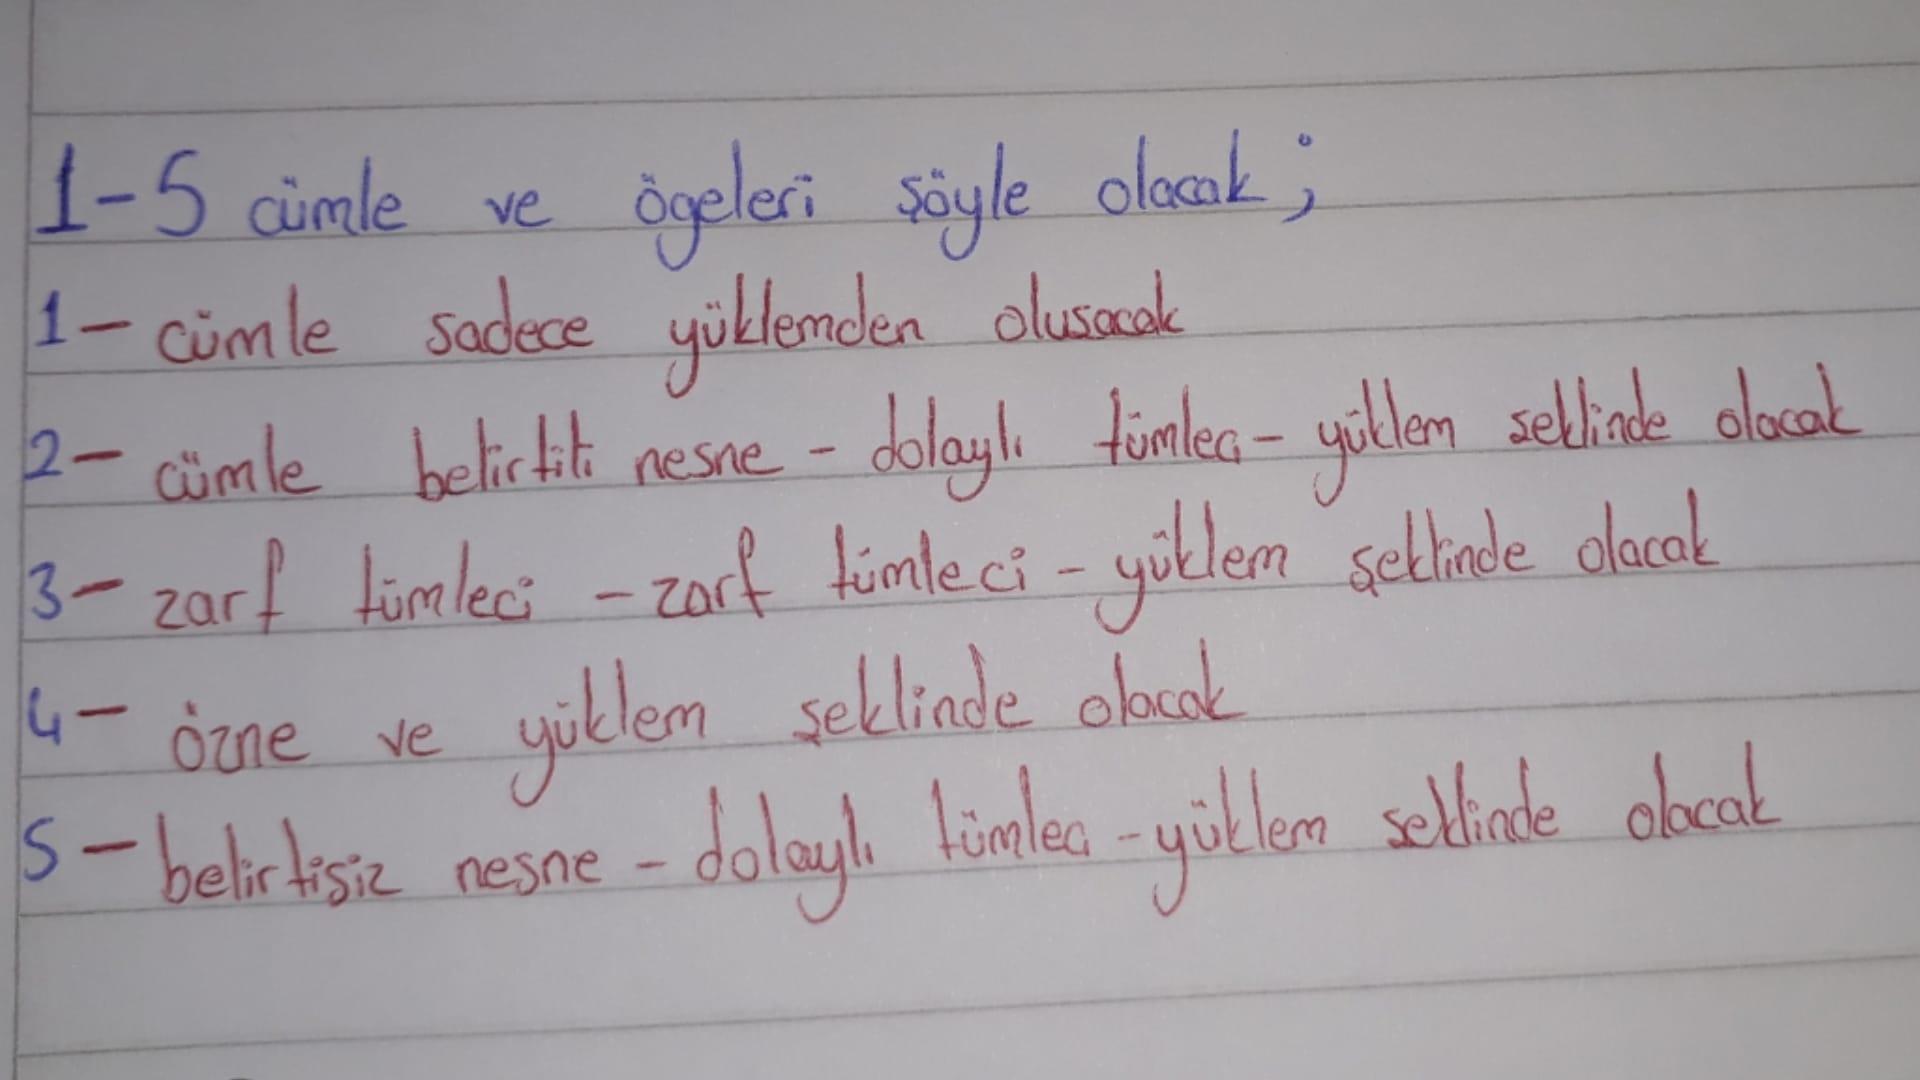 1-5 cümle ve ögeleri şöyle olacak;
1- cümle sadece yüklemden olusacak
2- cümle belirtili nesne - dolaylı tümlec - yüklem seklinde olacak
3- zarf tümleci - zarf tümleci - yüklem şeklinde olacak
4- özne ve yüklem şeklinde olacak
5- belirtisiz nesne - dolaylı tümlec - yüklem seklinde olacak